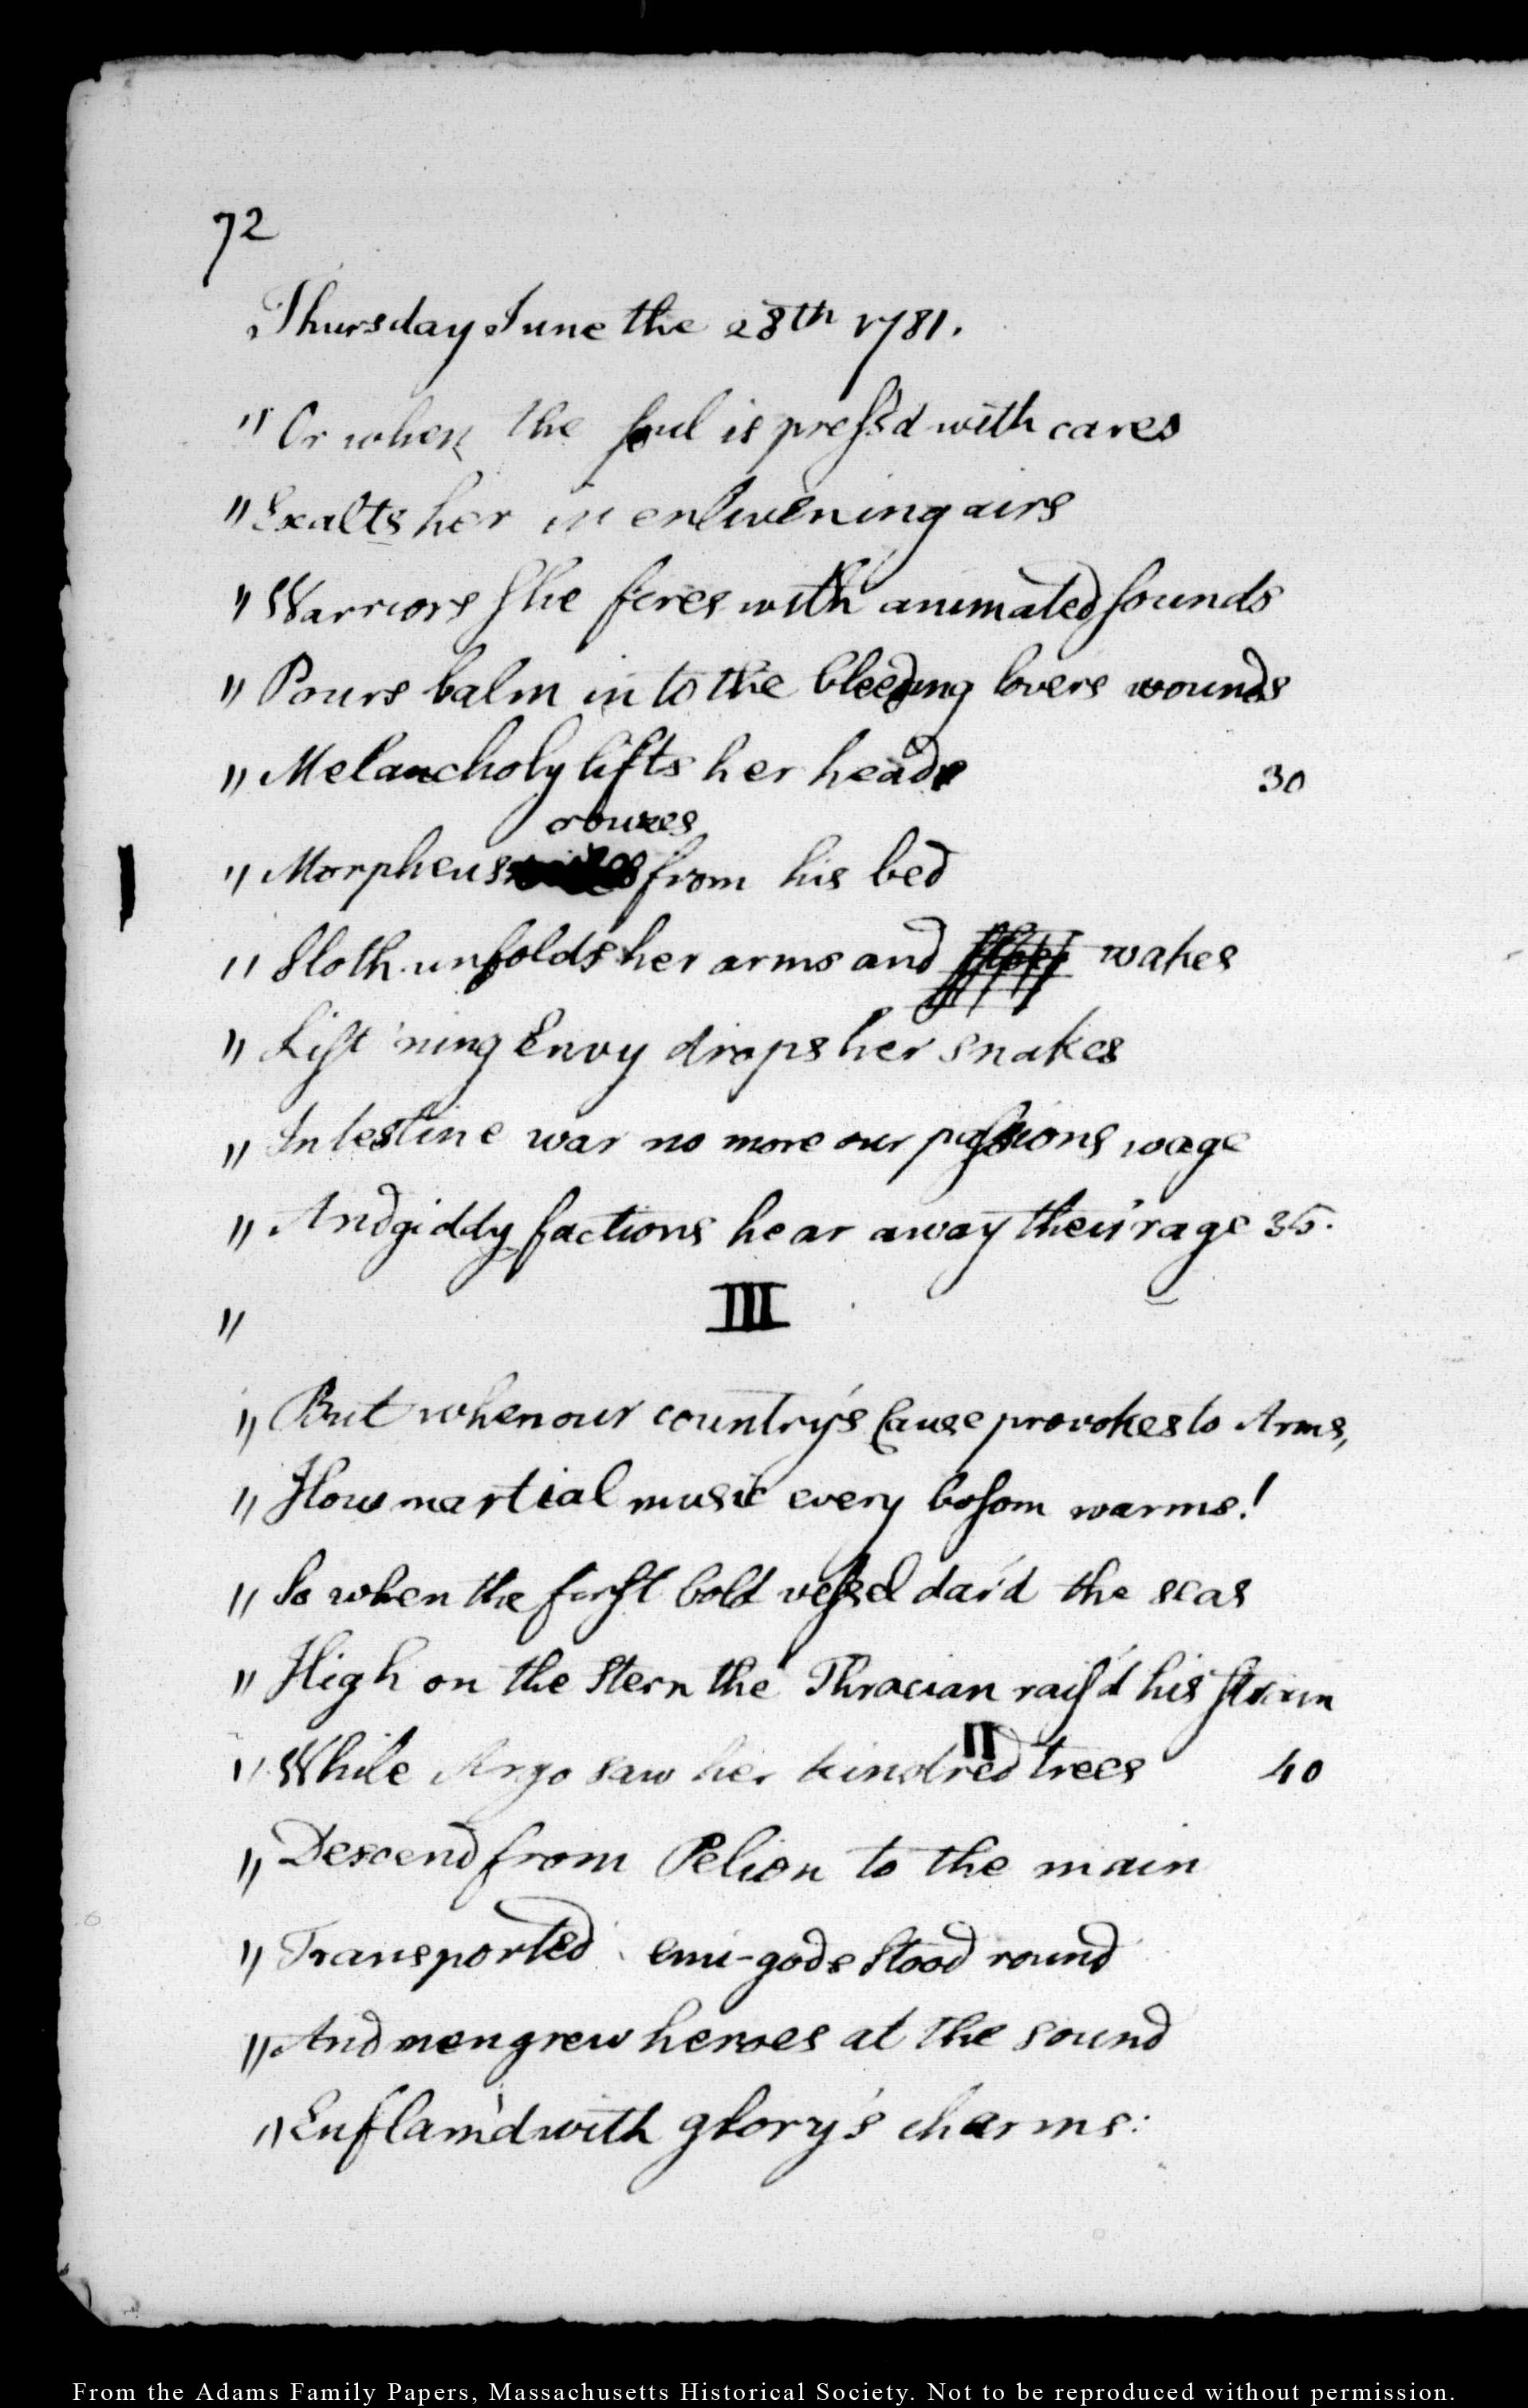 72
Thursday June the 28th 1781.
" Or when the soul is press'd with cares
" Exalts her in enlivening airs
" Warriors she fires with animated sounds
" Pours balm into the bleeding lovers wounds
" Melancholy lifts her head 30
rowzes
" Morpheus from his bed
" Sloth unfolds her arms and wakes
" List'ning Envy drops her snakes
" Intestine war no more our passions wage
" And giddy factions hear away their rage 35.
" III
" But when our country's Cause provokes to Arms,
" How martial music every bosom warms!
" So when the first bold vessel dar'd the seas
" High on the Stern the Thracian rais'd his strain
" While Argo saw her kindred trees 40
" Descend from Pelion to the main
" Transported emi-gods stood round
" And men grew heroes at the sound
" Enflam'd with glory's charms:
From the Adams Family Papers, Massachusetts Historical Society. Not to be reproduced without permission.